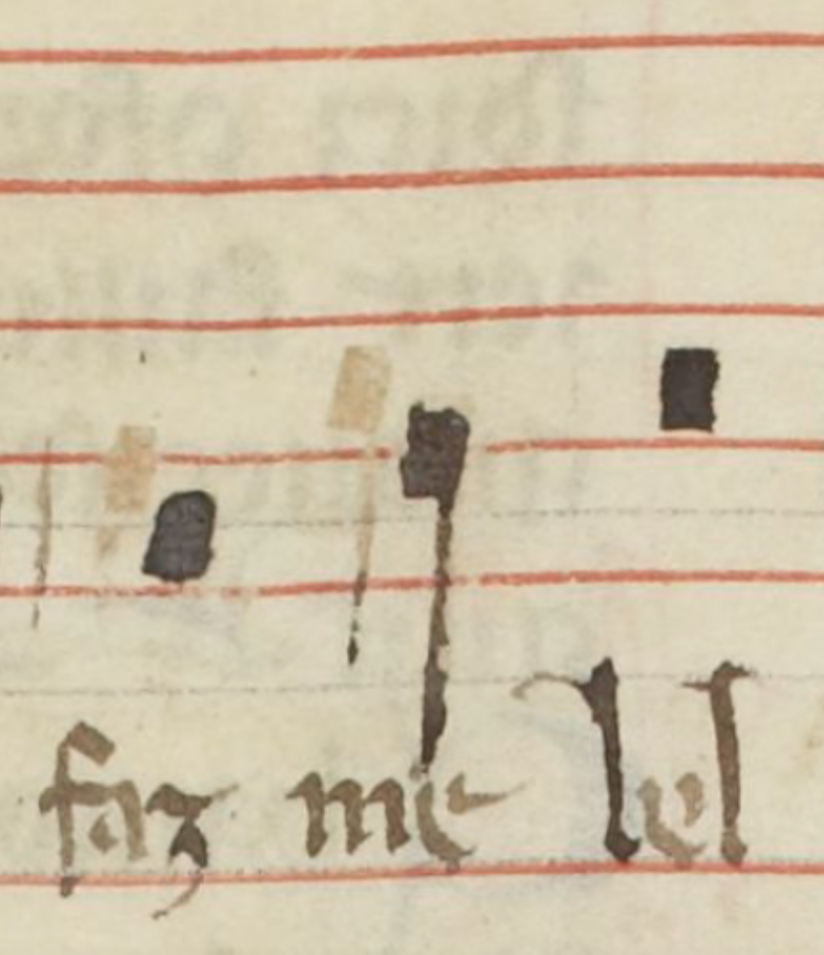 faz me lel